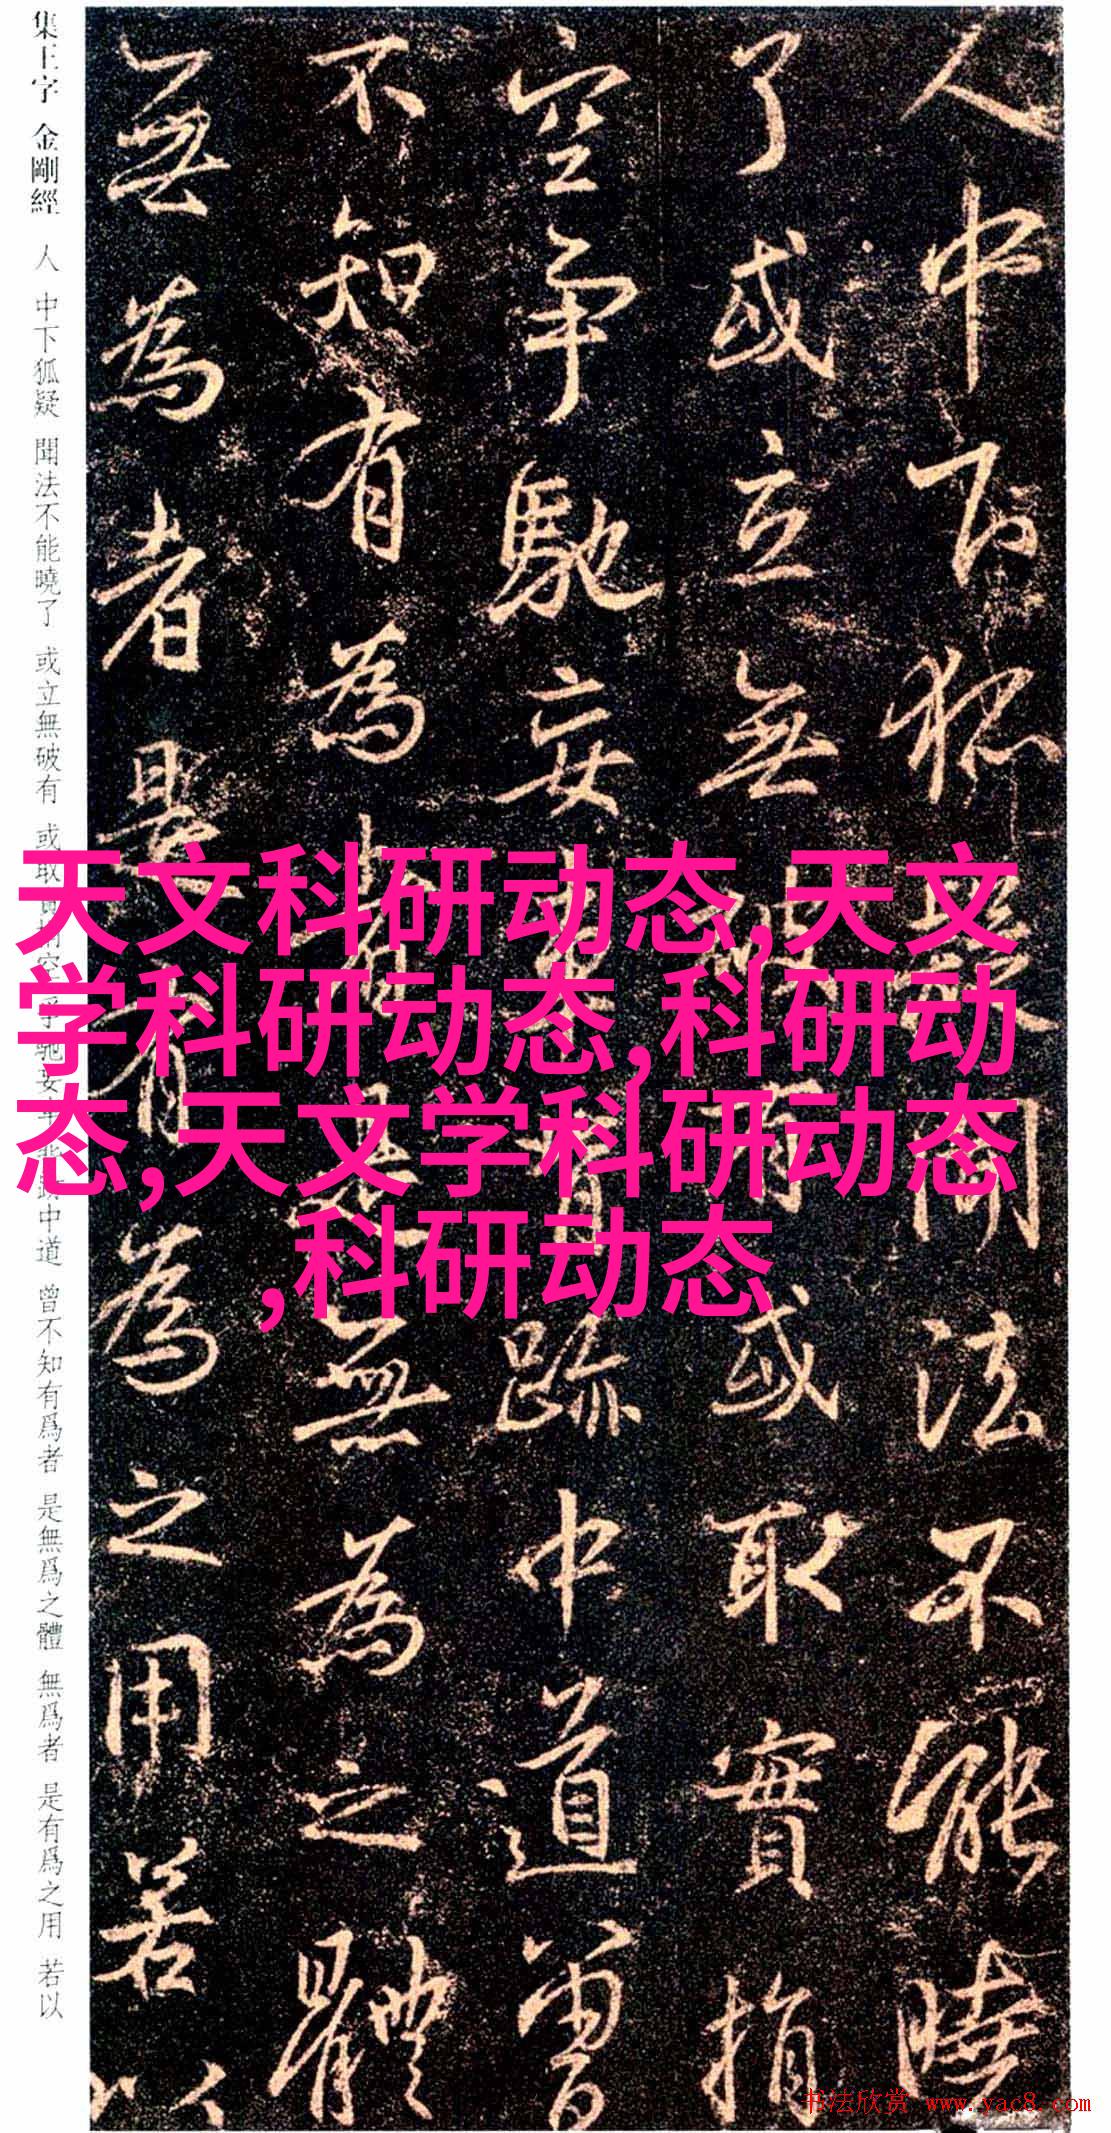 集王字 金剛經 人 中下狐疑 聞法不能曉了 或立無破有 或取 空爭馳妄 中道 曾不知有爲者 是無爲之體 無爲者 是有爲之用 若以
人中下狐疑聞法不能曉
了或立無破有或取實捐
空爭馳妄 背跡中道曾
不知有為者是無為之體
無為者是有為之用若以
天文科研动态,天文
学科研动态,科研动
态,天文学科研动态
,科研动态
书法欣赏 www.yac8.com